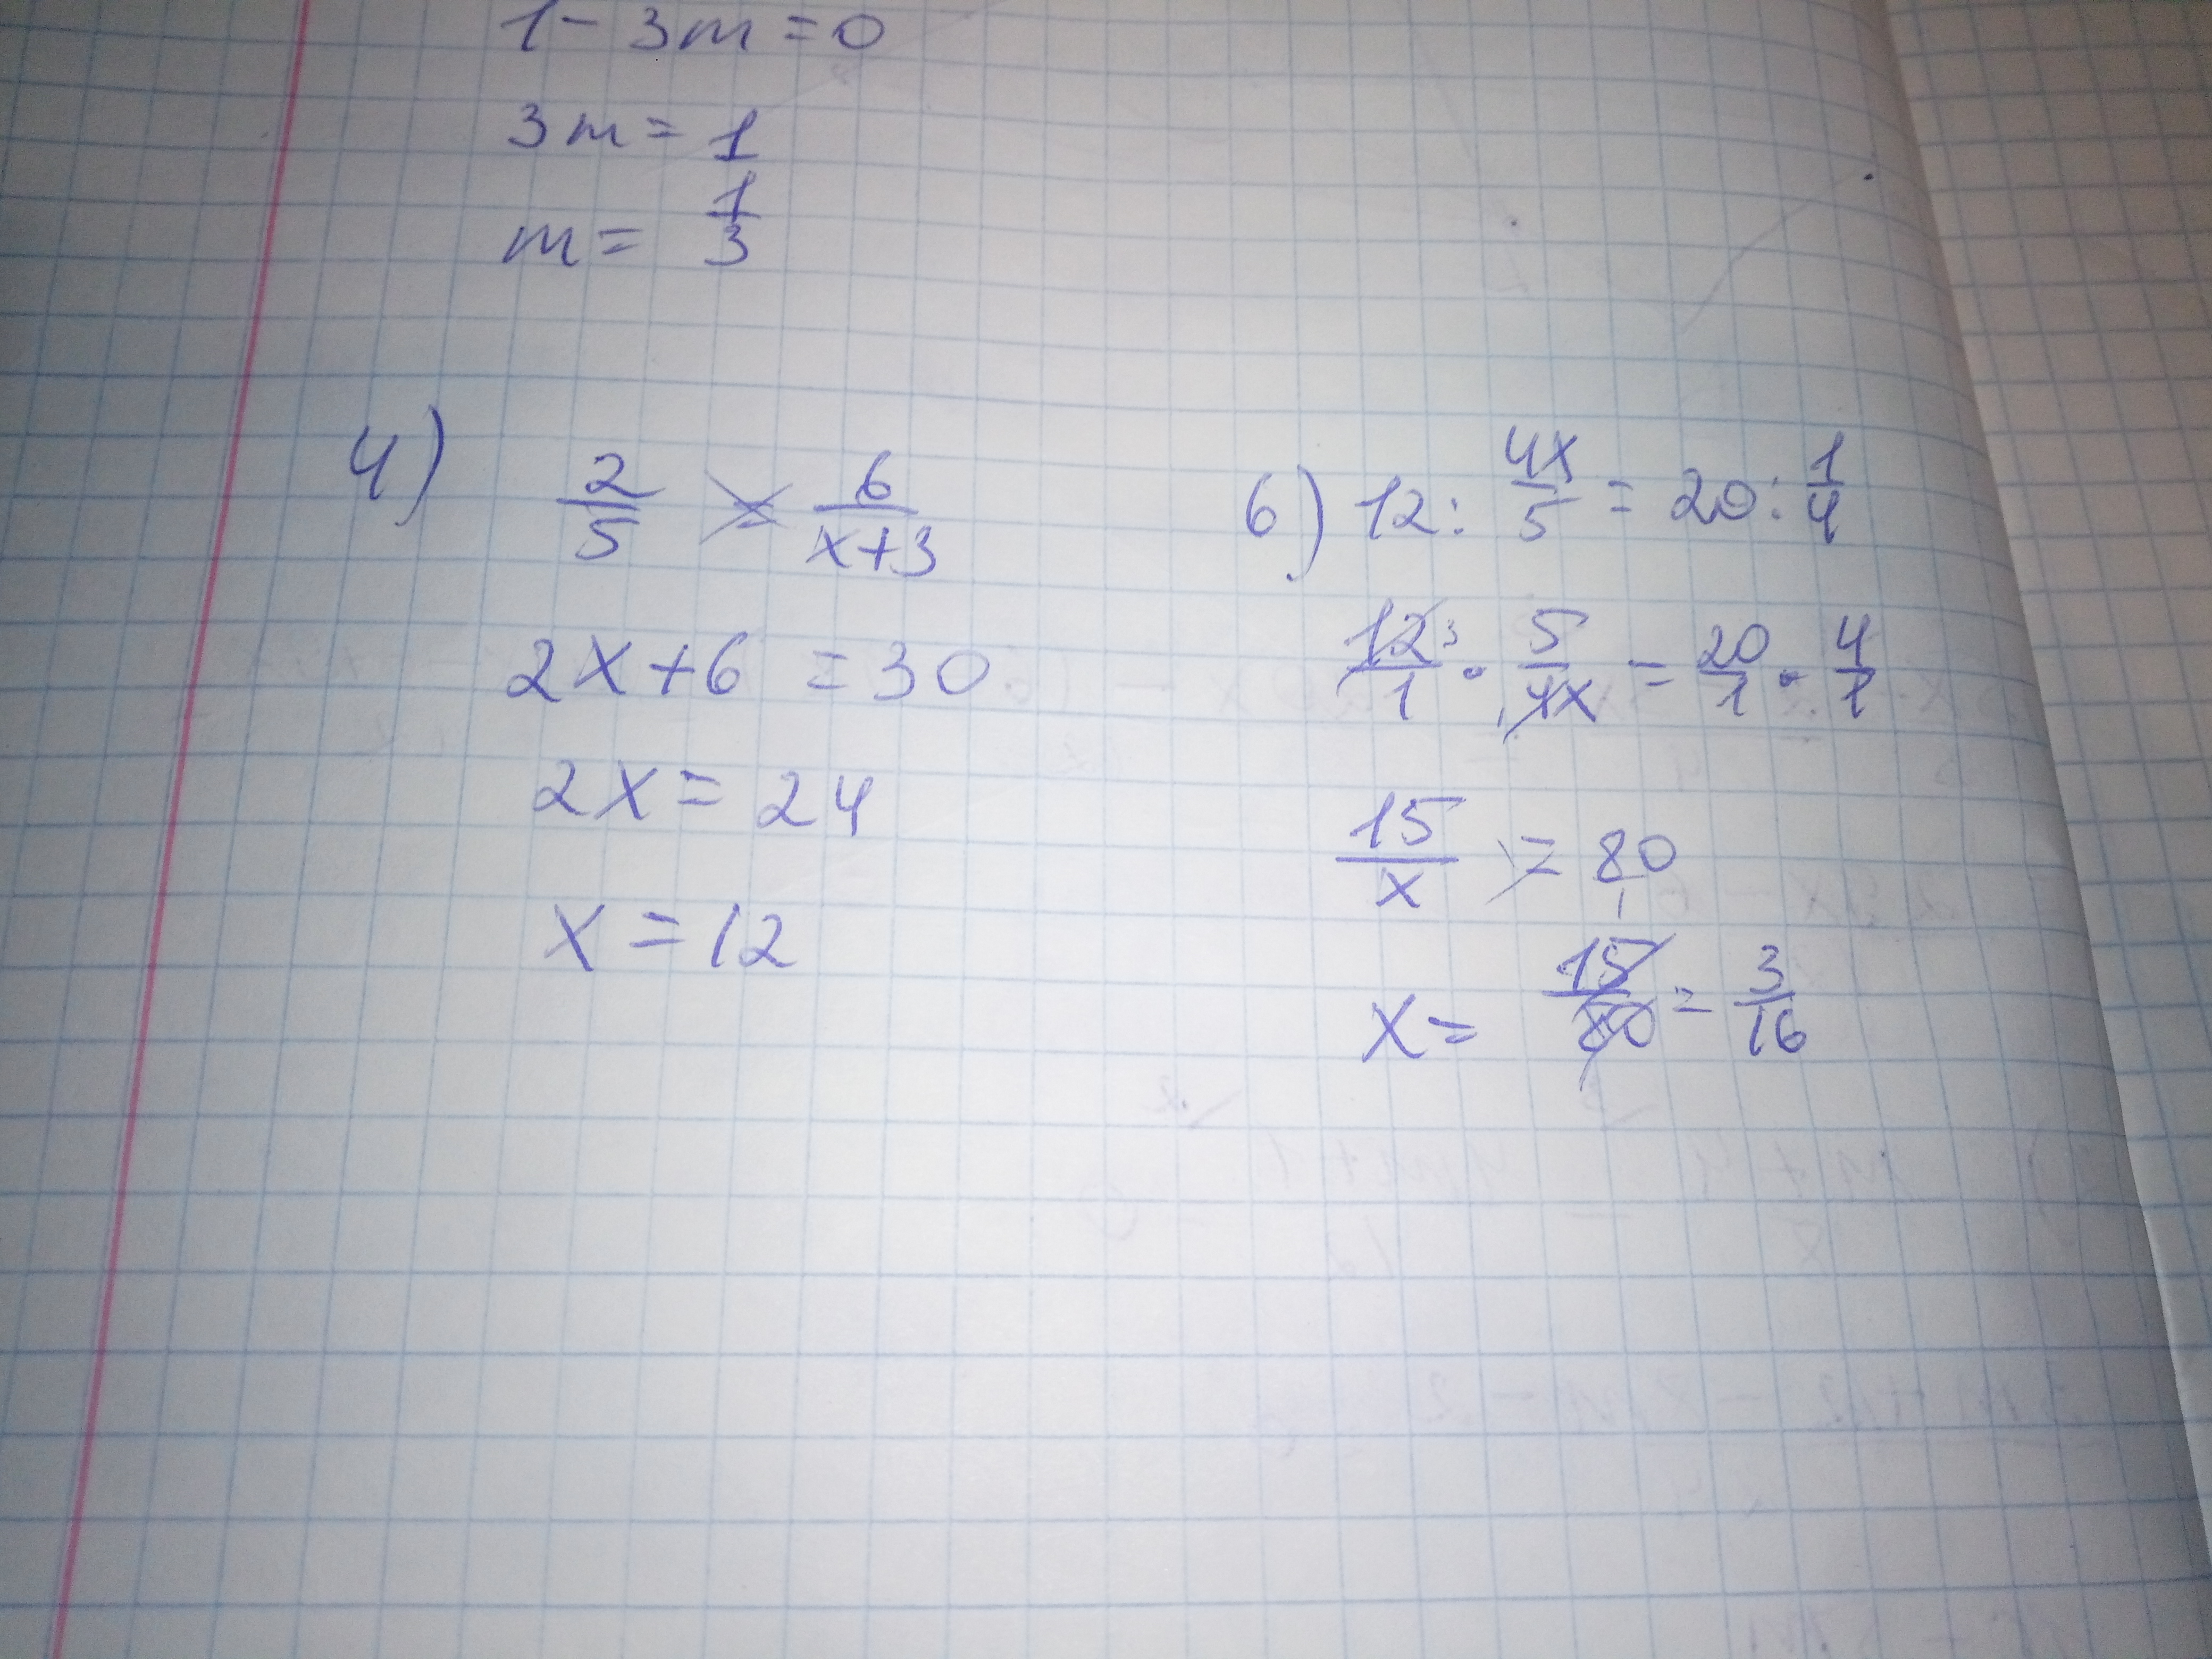 1 - 3m = 0
3m = 1
m = 1/3
4) 2/5 = 6/(x+3)
2x+6 = 30
2x = 24
x = 12
6) 12 : 4x/5 = 20 : 1/4
12/1 3 · 5/4x 1 = 20/1 · 4/1
15/x = 80/1
x = 15/80 = 3/16